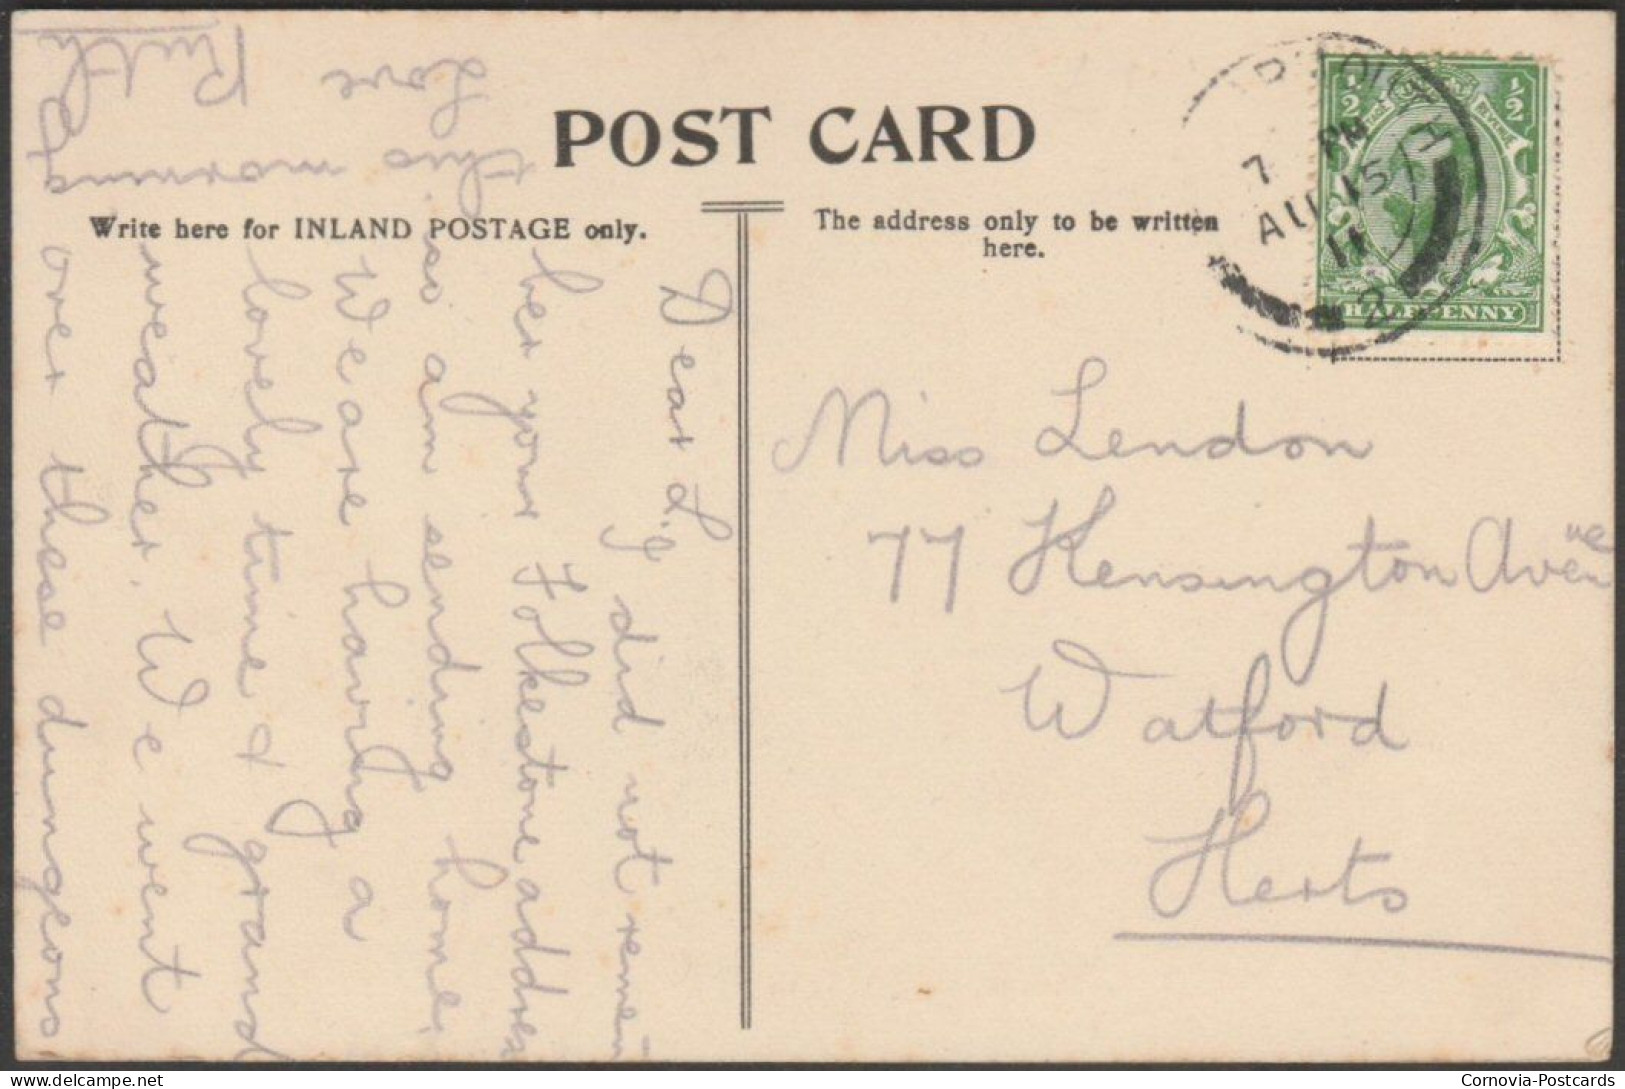 POST CARD
Write here for INLAND POSTAGE only.
The address only to be written
here.
Dear L.
I did not remem
ber your Folkestone address
so am sending home.
We are having a
lovely time & grand
weather. We went
over these dungeons
this morning
Love
Ruth
Miss Lendon
77 Kensington Avenue
Watford
Herts
1/2 1/2
HALFPENNY
7 PM
AU 15
11
2
Cornovia-Postcards